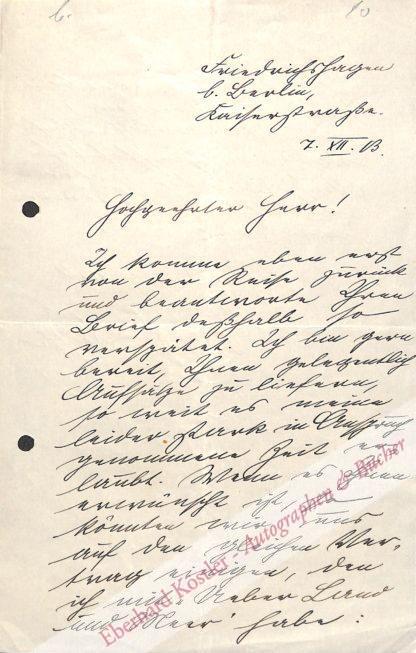 Friedrichshagen
b. Berlin,
Kaiserstraße.
7. XII. 03.
Hochgeehrter Herr!
Ich komme eben erst
von der Reise zurück
und beantworte Ihren
Brief deßhalb so
verspätet. Ich bin gern
bereit, Ihnen gelegentlich
Aufsätze zu liefern,
so weit es meine
leider stark in Anspruch
genommene Zeit er-
laubt. Wenn es Ihnen
erwünscht ist, so
könnten wir uns
auf den gleichen Ver-
trag einigen, den
ich mit "Ueber Land
und Meer" habe:
Eberhard Köstler - Autographen & Bücher